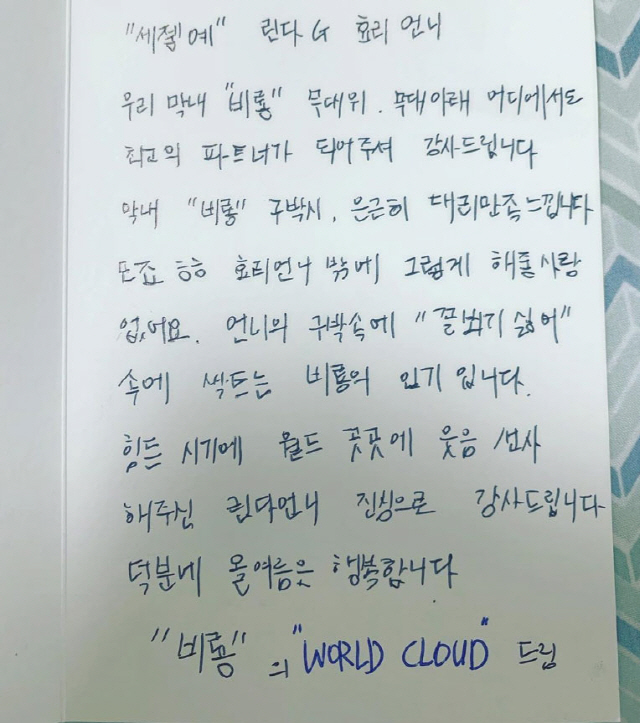 "세젤예" 린다G 효리 언니
우리 막내 "비룡" 무대위. 무대아래 어디에서도
최고의 파트너가 되어주셔 감사드립니다
막내 "비룡" 구박시, 은근히 대리만족느낍니다
또죠 ㅎㅎ 효리언니 밖에 그렇게 해줄사람
없어요. 언니의 구박속에 "꼴보기 싫어"
속에 싹트는 비룡의 인기 입니다.
힘든 시기에 월드 곳곳에 웃음 선사
해주신 린다언니 진심으로 감사드립니다
덕분에 올여름은 행복합니다.
"비룡"의 "WORLD CLOUD" 드림